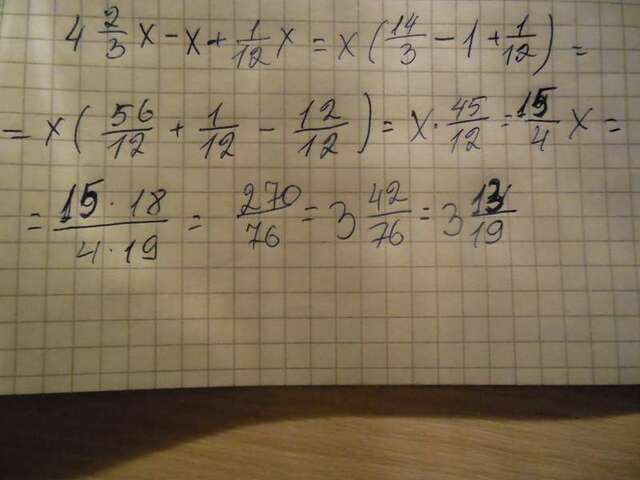 4 2/3 x - x + 1/12 x = x (14/3 - 1 + 1/12) =
= x (56/12 + 1/12 - 12/12) = x · 45/12 = 15/4 x =
= 15 · 18 / 4 · 19 = 270/76 = 3 42/76 = 3 /19